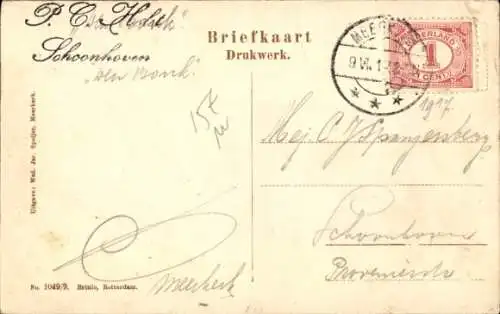 P. C. Hol
Schoonhoven
"den Bonk"
Briefkaart
Drukwerk.
MEERK
9 VI. 1
NEDERLAND
1
CENT
1917
15t
Mej. C. J. Spangenberg
Schoonhoven
Meerkerk
Uitgave: Wed. Jac. Speijer, Meerkerk.
No. 1049/9. Betsin, Rotterdam.